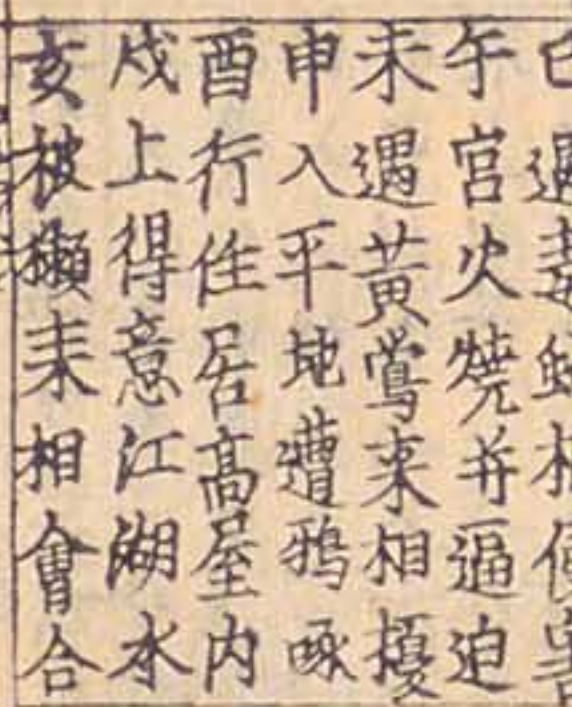 巳遇相侵害
午宮火燒并逼迫
未遇黃鶯来相擾
申入平地遭鴉啄
酉行住居高屋内
戌上得意江湖水
亥被獺来相會合